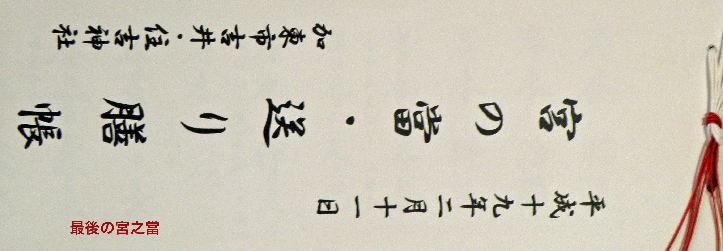 平成十九年二月十一日
宮の當・送り膳帳
加東市吉井・住吉神社
最後の宮之當